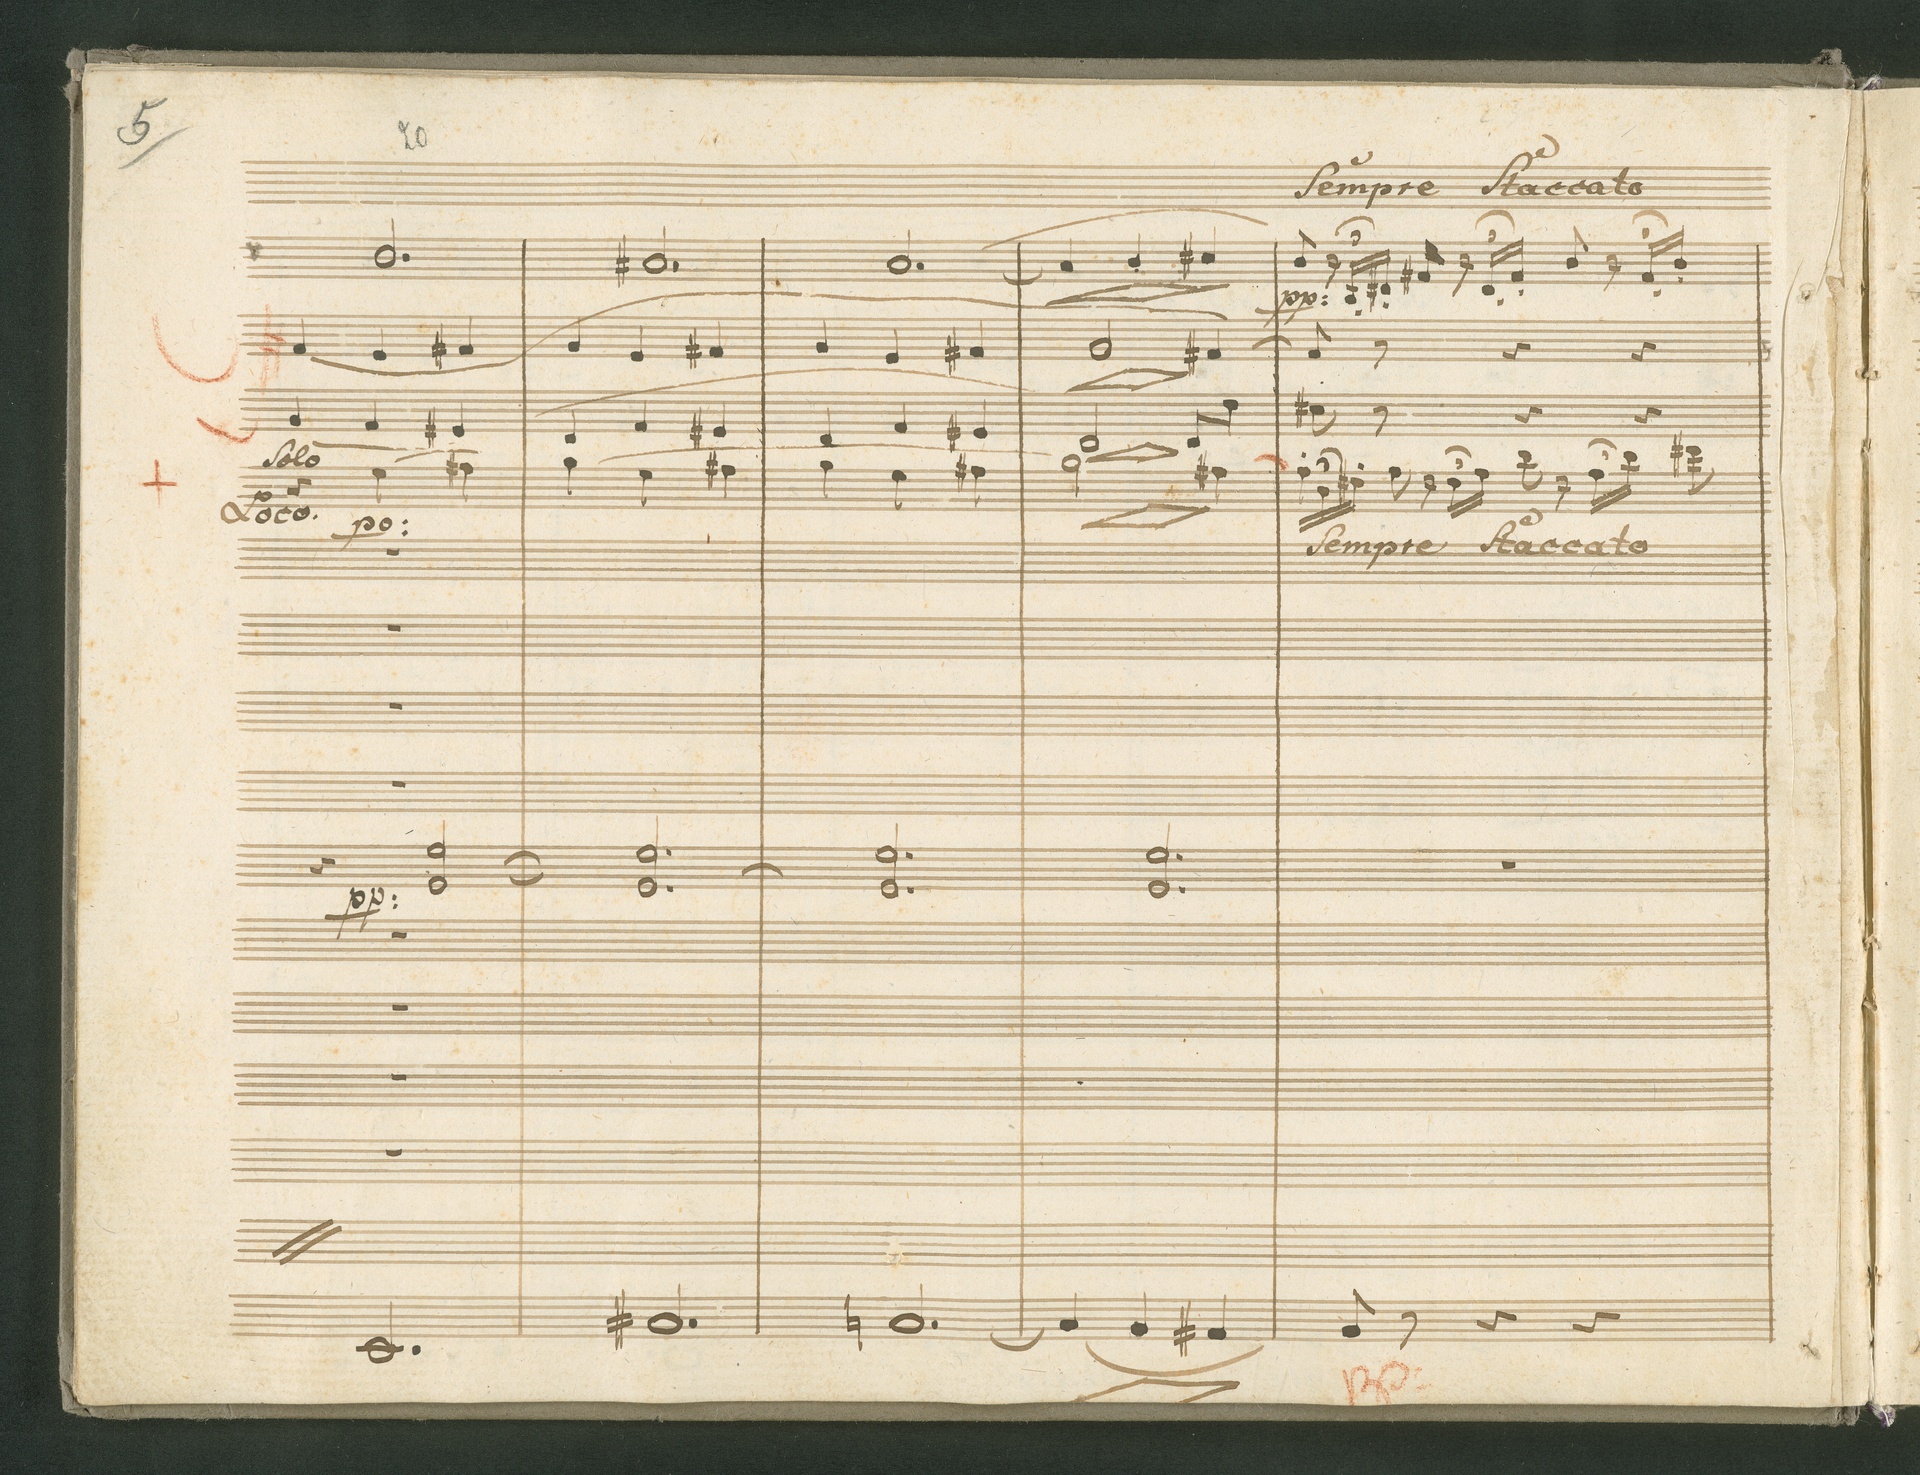 5
20
Sempre Staccato
pp:
Solo
Loco.
po:
Sempre Staccato
pp:
pp: